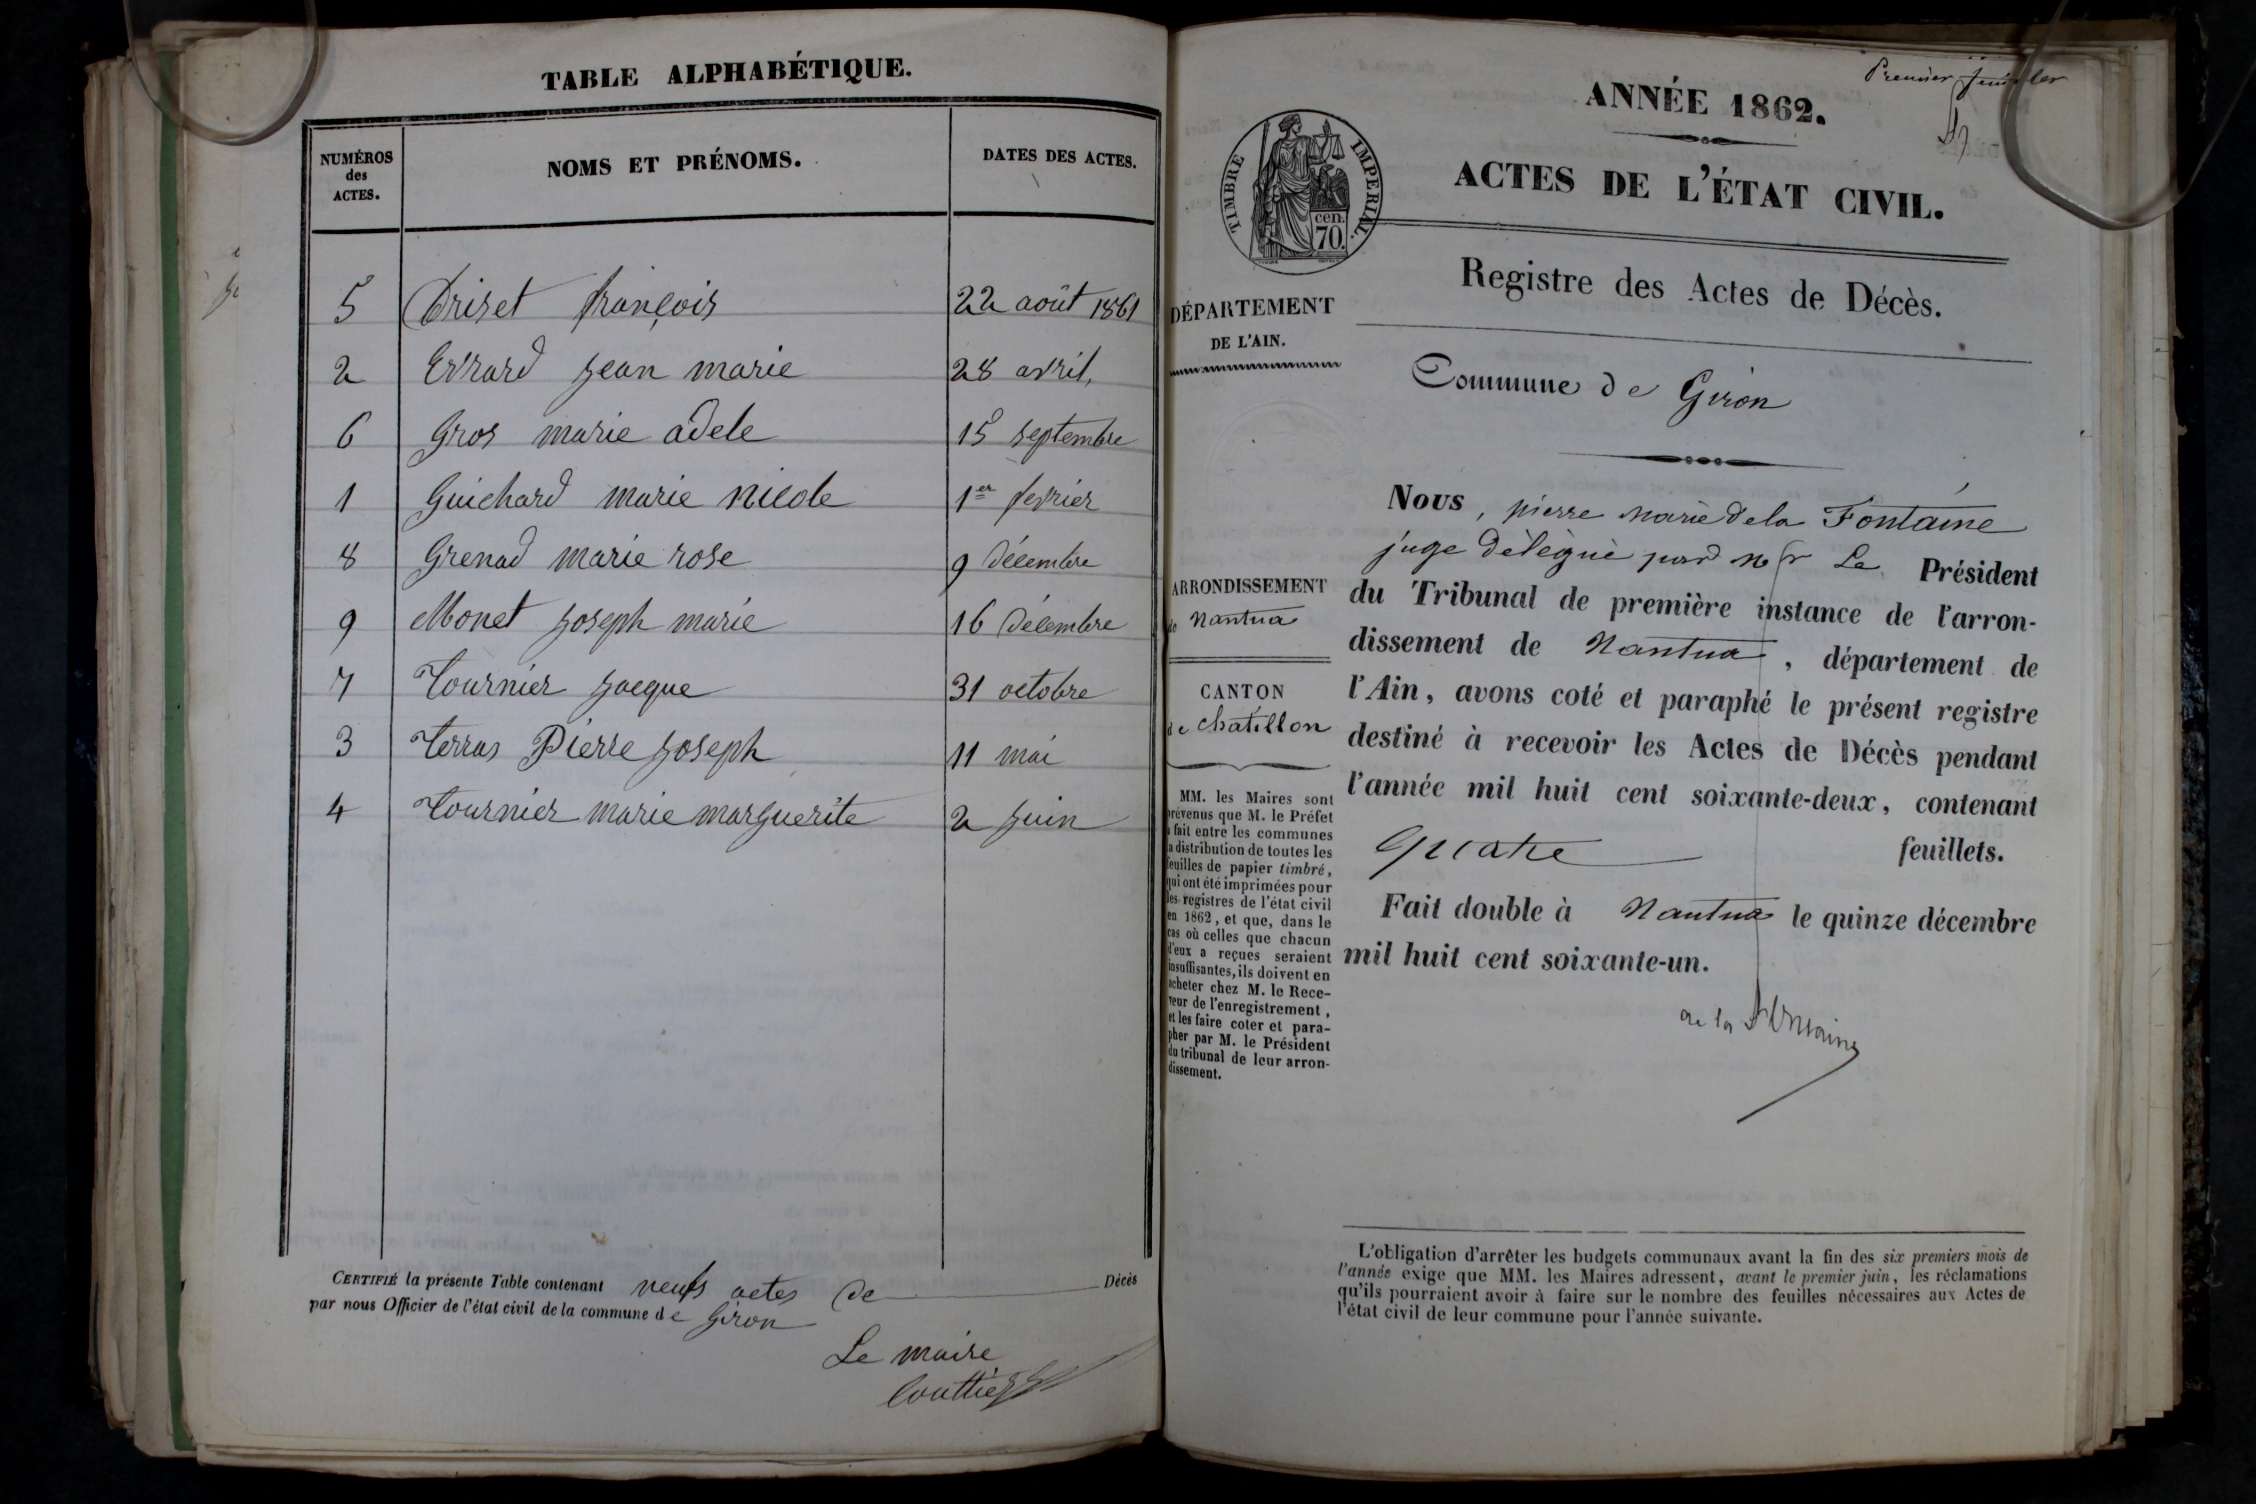 TABLE ALPHABÉTIQUE.
NUMÉROS des ACTES. NOMS ET PRÉNOMS. DATES DES ACTES.
5 Driset françois 22 août 1861
2 Evrard jean marie 28 avril,
6 Gros marie adele 15 septembre
1 Guichard marie nicole 1er fevrier
8 Grenad marie rose 9 décembre
9 Monet joseph marie 16 décembre
7 Tournier jacque 31 octobre
3 Terras Pierre joseph 11 mai
4 Tournier marie marguerite 2 juin
CERTIFIÉ la présente Table contenant neufs actes de Décès
par nous Officier de l'état civil de la commune de Giron
Le maire
Premier feuillet
ANNÉE 1862.
ACTES DE L'ÉTAT CIVIL.
TIMBRE IMPERIAL.
cen.
70.
Registre des Actes de Décès.
DÉPARTEMENT
DE L'AIN.
Commune de Giron
ARRONDISSEMENT
de Nantua
CANTON
de chatillon
MM. les Maires sont
prévenus que M. le Préfet
a fait entre les communes
la distribution de toutes les
feuilles de papier timbré,
qui ont été imprimées pour
les registres de l'état civil
en 1862, et que, dans le
cas où celles que chacun
d'eux a reçues seraient
insuffisantes, ils doivent en
acheter chez M. le Rece-
veur de l'enregistrement,
et les faire coter et para-
pher par M. le Président
du tribunal de leur arron-
dissement.
Nous, pierre marie de la Fontaine
juge délégué par Mr Le Président
du Tribunal de première instance de l'arron-
dissement de Nantua, département de
l'Ain, avons coté et paraphé le présent registre
destiné à recevoir les Actes de Décès pendant
l'année mil huit cent soixante-deux, contenant
Quatre feuillets.
Fait double à Nantua le quinze décembre
mil huit cent soixante-un.
de la Fontaine
L'obligation d'arrêter les budgets communaux avant la fin des six premiers mois de
l'année exige que MM. les Maires adressent, avant le premier juin, les réclamations
qu'ils pourraient avoir à faire sur le nombre des feuilles nécessaires aux Actes de
l'état civil de leur commune pour l'année suivante.